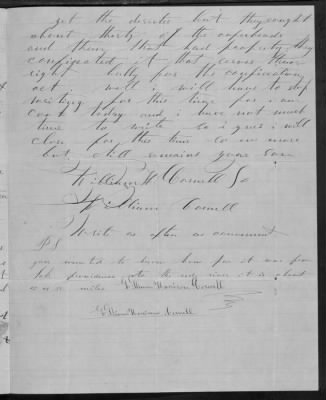 get the deserters but they caught
about thirty of the copperheads
and them that had property they
confiscated it that serves them
right bully for the confiscation
act. well i will have to stop
writing for this time for i am
cook today and i have not much
time to write so i guess i will
close for this time so no more
but still remains your son
William H Cornell Sr
William Cornell
Write as often as convenient
PS
you wanted to know how far it was from
Lake providence into the red river it is about
miles William Harrison Cornell
William Harrison Cornell